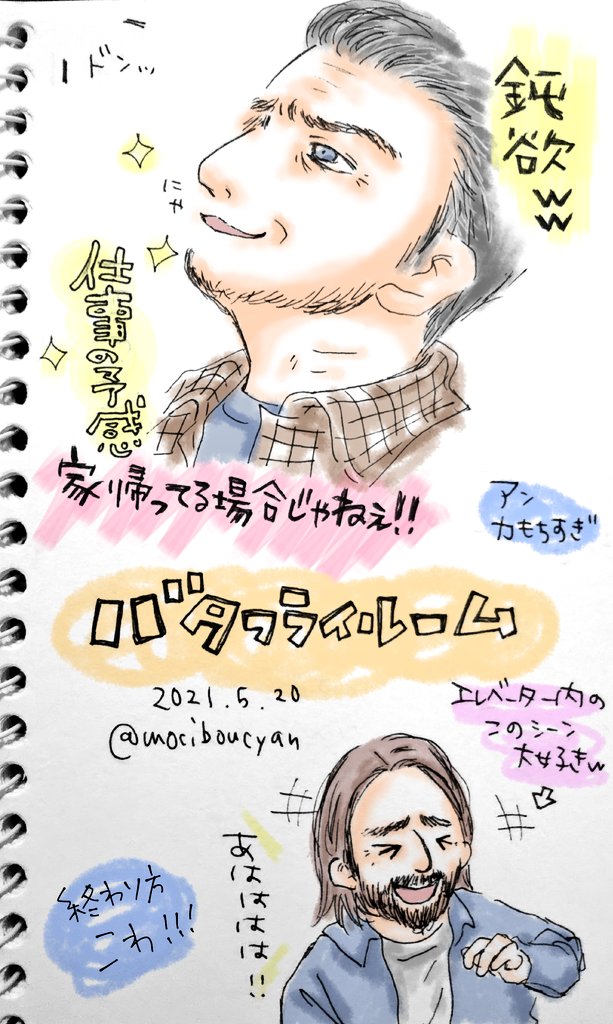 ドンッ
鈍欲ww
にや
仕事の予感
家帰ってる場合じゃねぇ!!
アン
力もちすぎ
バタフライ・ルーム
2021.5.20
@mociboucyan
エレベーター内の
このシーン
大好きw
あはははは!!
終わり方
こわ!!!